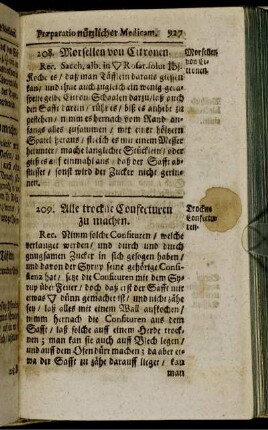 Præparatio nützlicher Medicam. 927
208. Morsellen von Citronen.
Rec. Sacch. alb. in ▽ Rosar. solut. lbj.
Koche es / daß man Täfflein daraus giessen
kan / und thue auch zugleich ein wenig
Citron-Schaalen darzu / laß auch
den Safft darein / rühr es / biß es anhebt zu
gestehen / nimm es hernach vom Rand
alles zusammen / mit einer höltzern
Spatel heraus / streich es mit einem Messer
mache länglichte Stücklein / oder
gieß es auf einmahl aus / daß der Safft
/ sonst wird der Zucker nicht
nen.
Morsellen
von Ci-
tronen.
209. Alle trockne Confecturen
zu machen.
Rec. Nimm solche Confituren / welche
verlanget werden / und durch und durch
gnugsamen Zucker in sich gesogen haben /
und davon der Syrup seine gehörige Consi-
stenz hat / setze die Confituren mit dem Sy-
rup über Feuer / doch daß erst der Safft mit
etwas ▽ dünn gemachet ist / und nicht zähe
sey / laß alles mit einem Wall aufkochen /
nimm hernach die Confituren aus dem
Saffte / laß solche auff einem Herde trock-
nen ; man kan sie auch auff Blech legen /
und auff dem Ofen dürr machen ; da aber et-
wa der Saffte zu zähe darauff lieget / kan
man
Trockne
Confectu-
ren.